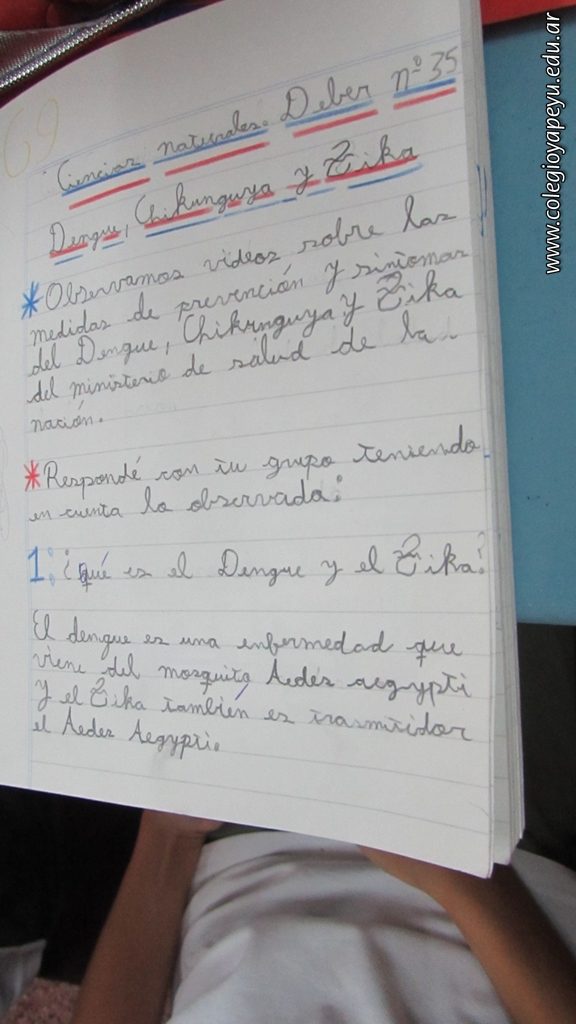 Ciencias naturales. Deber nº 35
Dengue, Chikunguya y Zika
* Observamos videos sobre las
medidas de prevención y sintomas
del Dengue, Chikunguya y Zika
del ministerio de salud de la
nación.
* Respondé con tu grupo teniendo
en cuenta lo observado:
1: ¿qué es el Dengue y el Zika?
El dengue es una enfermedad que
viene del mosquito Aedes aegypti
y el Zika también es trasmitidor
el Aedes Aegypti.
www.colegioyapeyu.edu.ar